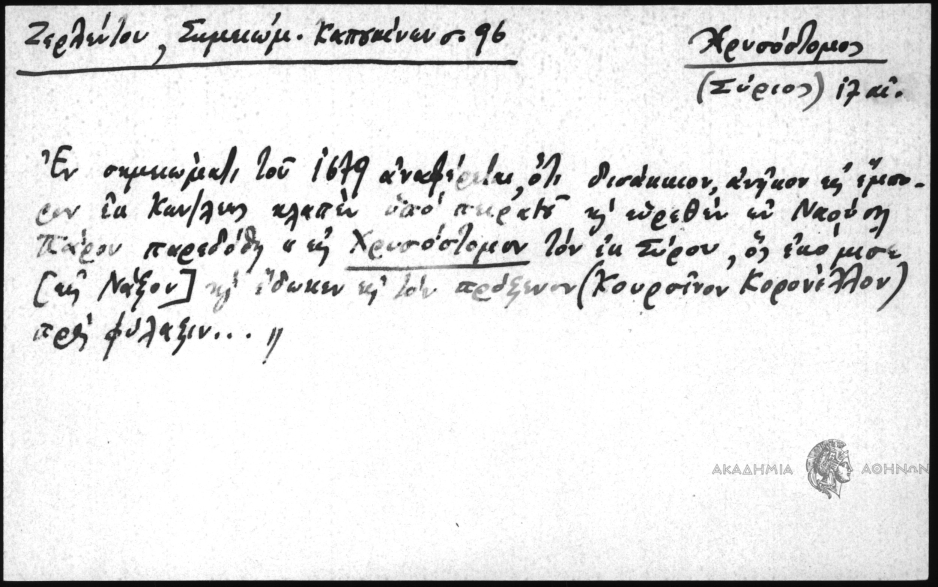 Ζερλέντου, Σημειώμ. Καπουκίνων σ. 96
Χρυσόστομος
(Σύριος) ιζ αἰ.
Ἐν σημειώματι τοῦ 1679 ἀναφέρεται, ὅτι δισάκκιον, ἀνῆκον εἰς ἔμπο-
ρον ἐκ Κων/λεως κλαπὲν ὑπὸ πειρατοῦ κ' εὑρεθὲν ἐν Ναούσῃ
Πάρου παρεδόθη εἰς Χρυσόστομον τὸν ἐκ Σύρου, ὃς ἐκόμισε
[εἰς Νάξον] κ' ἔδωκεν εἰς τὸν πρόξενον (Κουρσῖνον Κορονέλλον)
πρὸς φύλαξιν... //
ΑΚΑΔΗΜΙΑ ΑΘΗΝΩΝ